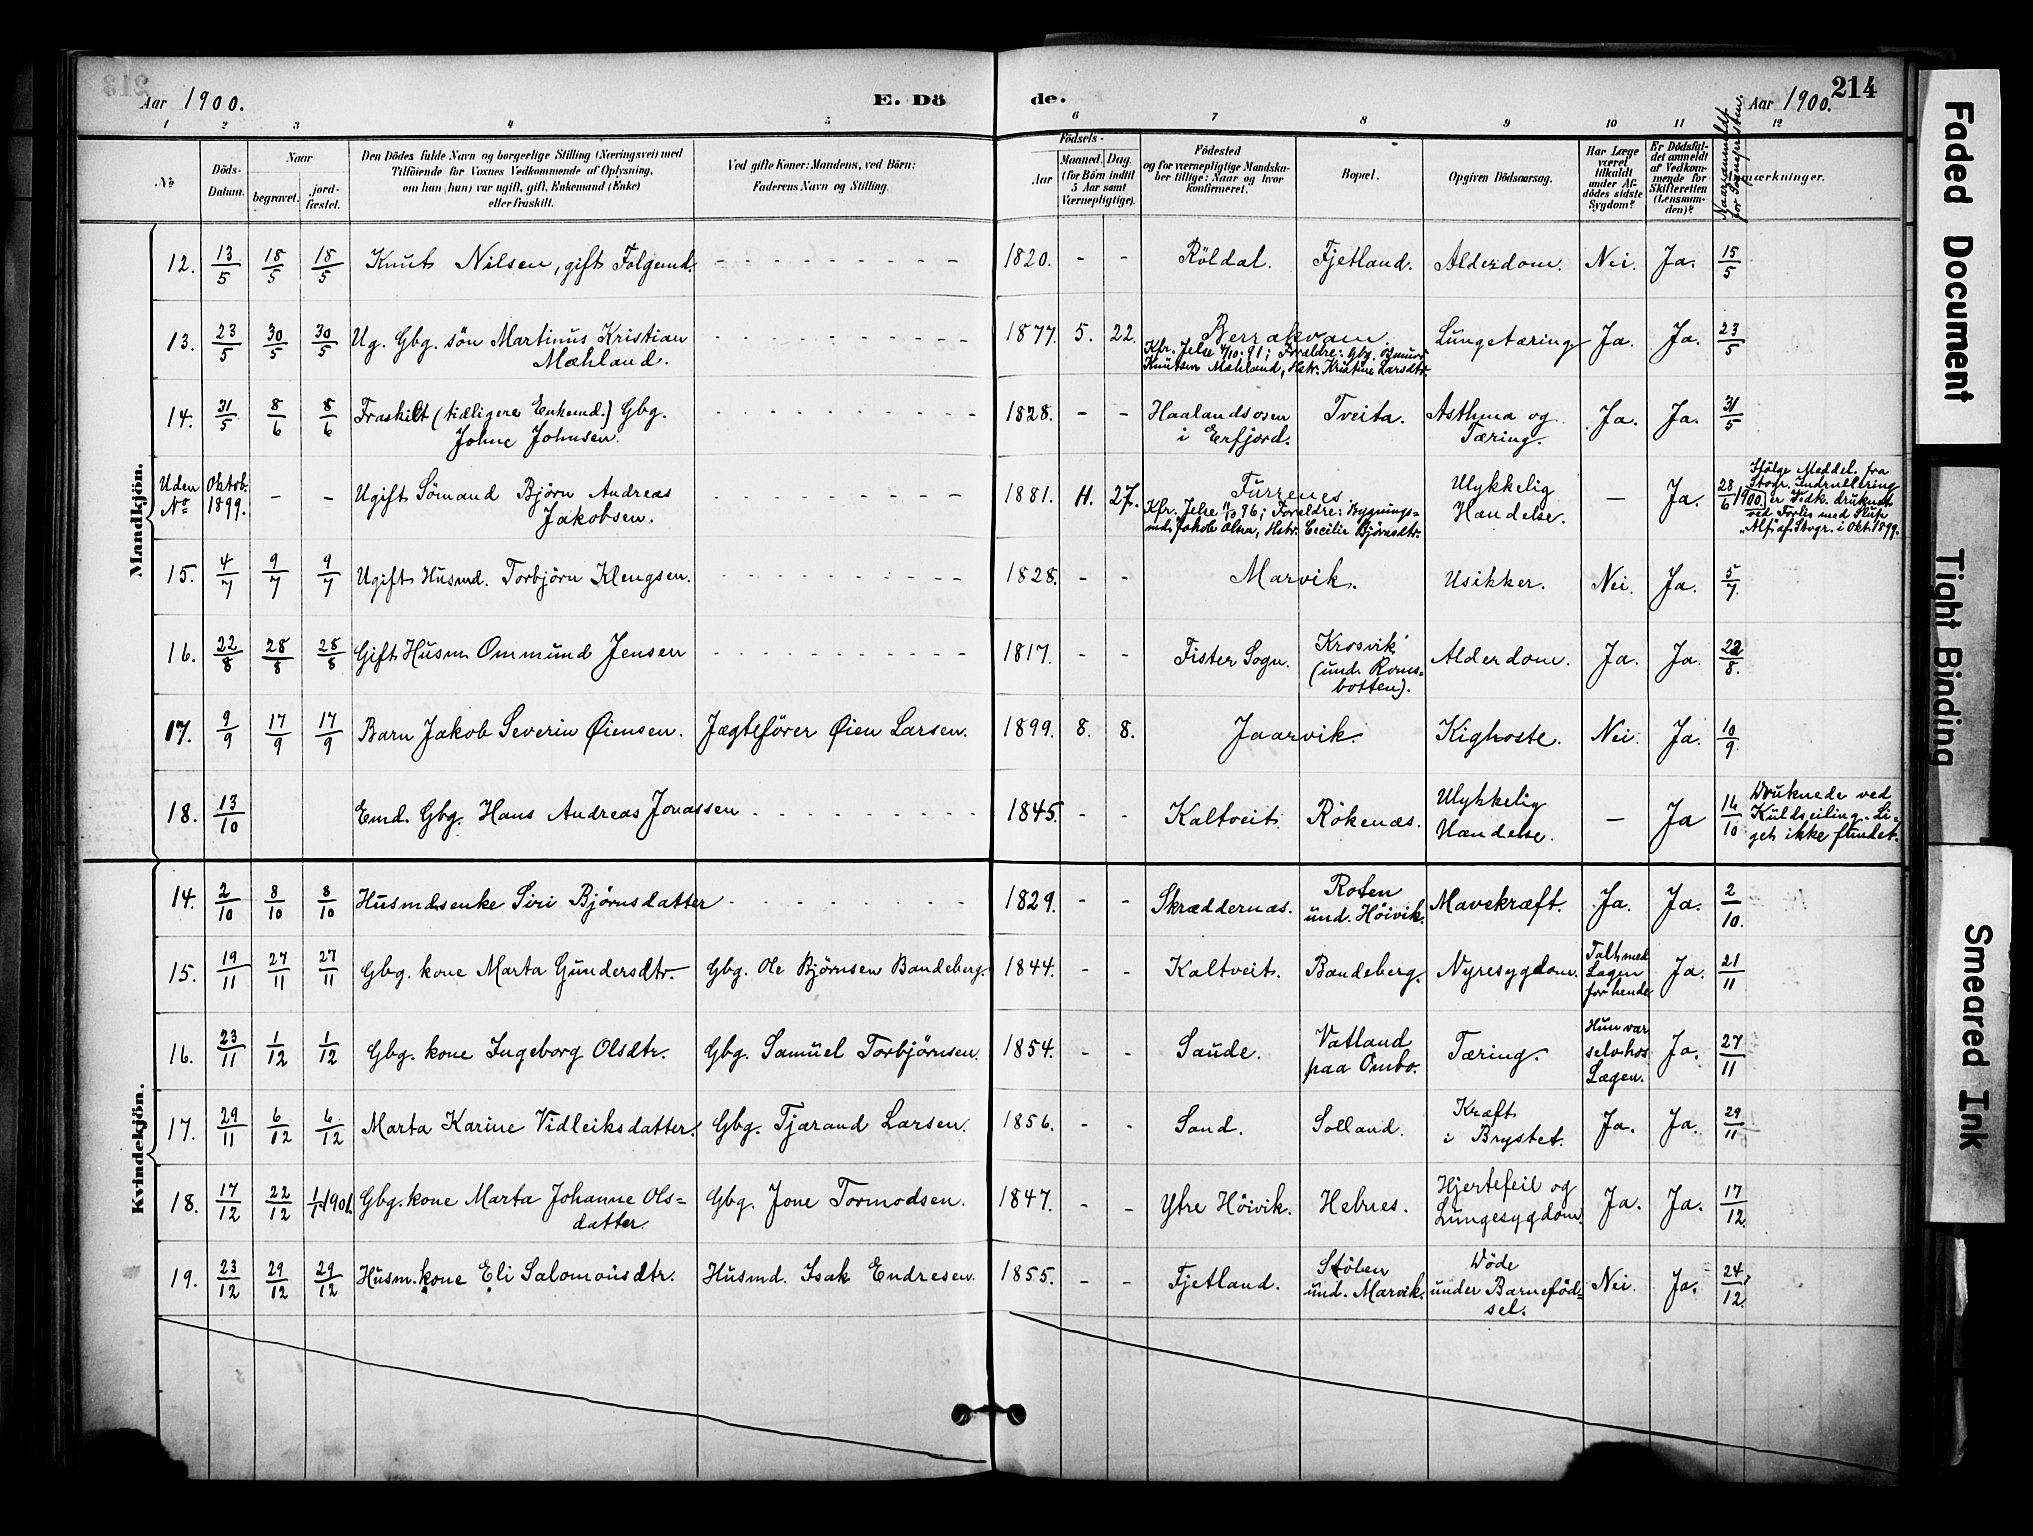 Aar 1900.
E. Dö
de.
Aar 1900.
214
1 2 3 4 5 6 7 8 9 10 11 12
No
Döds-
Datum.
Naar
begravet.
jord-
fæstet.
Den Dödes fulde Navn og borgerlige Stilling (Næringsvei) med
Tilföiende for Voxnes Vedkommende af Oplysning,
om han (hun) var ugift, gift, Enkemand (Enke)
eller fraskilt.
Ved gifte Koner: Mandens, ved Börn:
Faderens Navn og Stilling.
Födsels-
Aar
Maaned. Dag.
(for Börn indtil
5 Aar samt
Værnepligtige).
Födested
og for værnepligtige Mandska-
ber tillige: Naar og hvor
konfirmeret.
Bopæl.
Opgiven Dödsaarsag.
Har Læge
været
tilkaldt
under Af-
dödes sidste
Sygdom?
Er Dödsfal-
det anmeldt
af Vedkom-
mende for
Skifteretten
(Lensman-
den)?
Naar anmeldt
for Sognepresten.
Anmærkninger.
Mandkjön.
12. 13/5 18/5 18/5 Knut Nilsen, gift Følgemd. 1820. - - Röldal. Fjetland. Alderdom. Nei. Ja. 15/5
13. 23/5 30/5 30/5 Ug. Gbg. søn Martinus Kristian
Mæhland. 1877. 5. 22. Berrakvam. Lungetæring Ja. Ja. 23/5
Kfr. Jelse 4/10. 91; Forældre: Gbg.
Knutsen Mæhland, Hstr. Kristine Larsdtr.
14. 31/5 8/6 8/6 Fraskilt (tidligere Enkemd.) Gbg.
Johne Johnsen. 1828. - - Haalandsosen
i Erfjord. Tveita. Asthma og
Tæring. Ja. Ja. 31/5
Uden
No Oktob.
1899. - - Ugift Sömand Bjørn Andreas
Jakobsen. 1881. 4. 27. Furrenes. Ulykkelig
Hændelse. — Ja. 28/6 1900.
Kfr. Jelse 11/10 96; Forældre: Bygnings-
md. Jakob Olsen, Hstr. Cecilie Bjørnsdtr.
Ifølge Meddel. fra
Stvgr. Indrullering
er Vedk. druknet
ved Forlis med Skup
"Alf" af Stvgr. i Okt. 1899.
15. 4/7 9/7 9/7 Ugift Husmd. Torbjørn Klengsen. 1828. - - Marvik. Usikker. Nei. Ja. 5/7.
16. 22/8 28/8 28/8 Gift Husm. Ommund Jensen 1817. - - Fister Sogn. Krosvik
(und. Roms-
botten). Alderdom. Ja. Ja. 22/8.
17. 9/9 17/9 17/9 Barn Jakob Severin Øiensen. Jægtefører Øien Larsen. 1899. 8. 8. Jaarvik. Kighoste. Nei. Ja. 10/9.
18. 13/10 Emd. Gbg. Hans Andreas Jonassen 1845. - - Kaltveit. Rökenæs. Ulykkelig
Hændelse. — Ja 14/10 Druknede ved
Kuldseiling. Li-
get ikke fundet.
Kvindekjön.
14. 2/10 8/10 8/10 Husmdsenke Siri Bjørnsdatter 1829. - - Skræddernæs. Roten
und. Høivik. Mavekræft. Ja. Ja. 2/10.
15. 19/11 27/11 27/11 Gbg. kone Marta Gundersdtr. Gbg. Ole Bjørnsen Bandeberg. 1844. - - Kaltveit. Bandeberg. Nyresygdom. Talt med
Lægen
for hende Ja. 21/11
16. 23/11 1/12 1/12 Gbg. kone Ingeborg Olsdtr. Gbg. Samuel Torbjørnsen. 1854. - - Saude. Vatland
paa Ombo. Tæring. Hun var
selv hos
Lægen. Ja. 27/11
17. 29/11 6/12 6/12 Marta Karine Vidleiksdatter. Gbg. Tjærand Larsen. 1856. - - Sand. Solland. Kræft
i Brystet. Ja. Ja. 29/11
18. 17/12 22/12 1/1 1901. Gbg. kone Marta Johanne Ols-
datter. Gbg. Jone Tormodsen. 1847. - - Ytre Høivik. Hebnes. Hjertefeil og
Lungesygdom. Ja. Ja. 17/12.
19. 23/12 29/12 29/12 Husm. kone Eli Salomonsdtr. Husmd. Isak Endresen. 1855. - - Fjetland. Stölen
und. Marvik. Döde
under Barneföd-
sel. Nei. Ja. 24/12.
Faded Document
Tight Binding
Smeared Ink